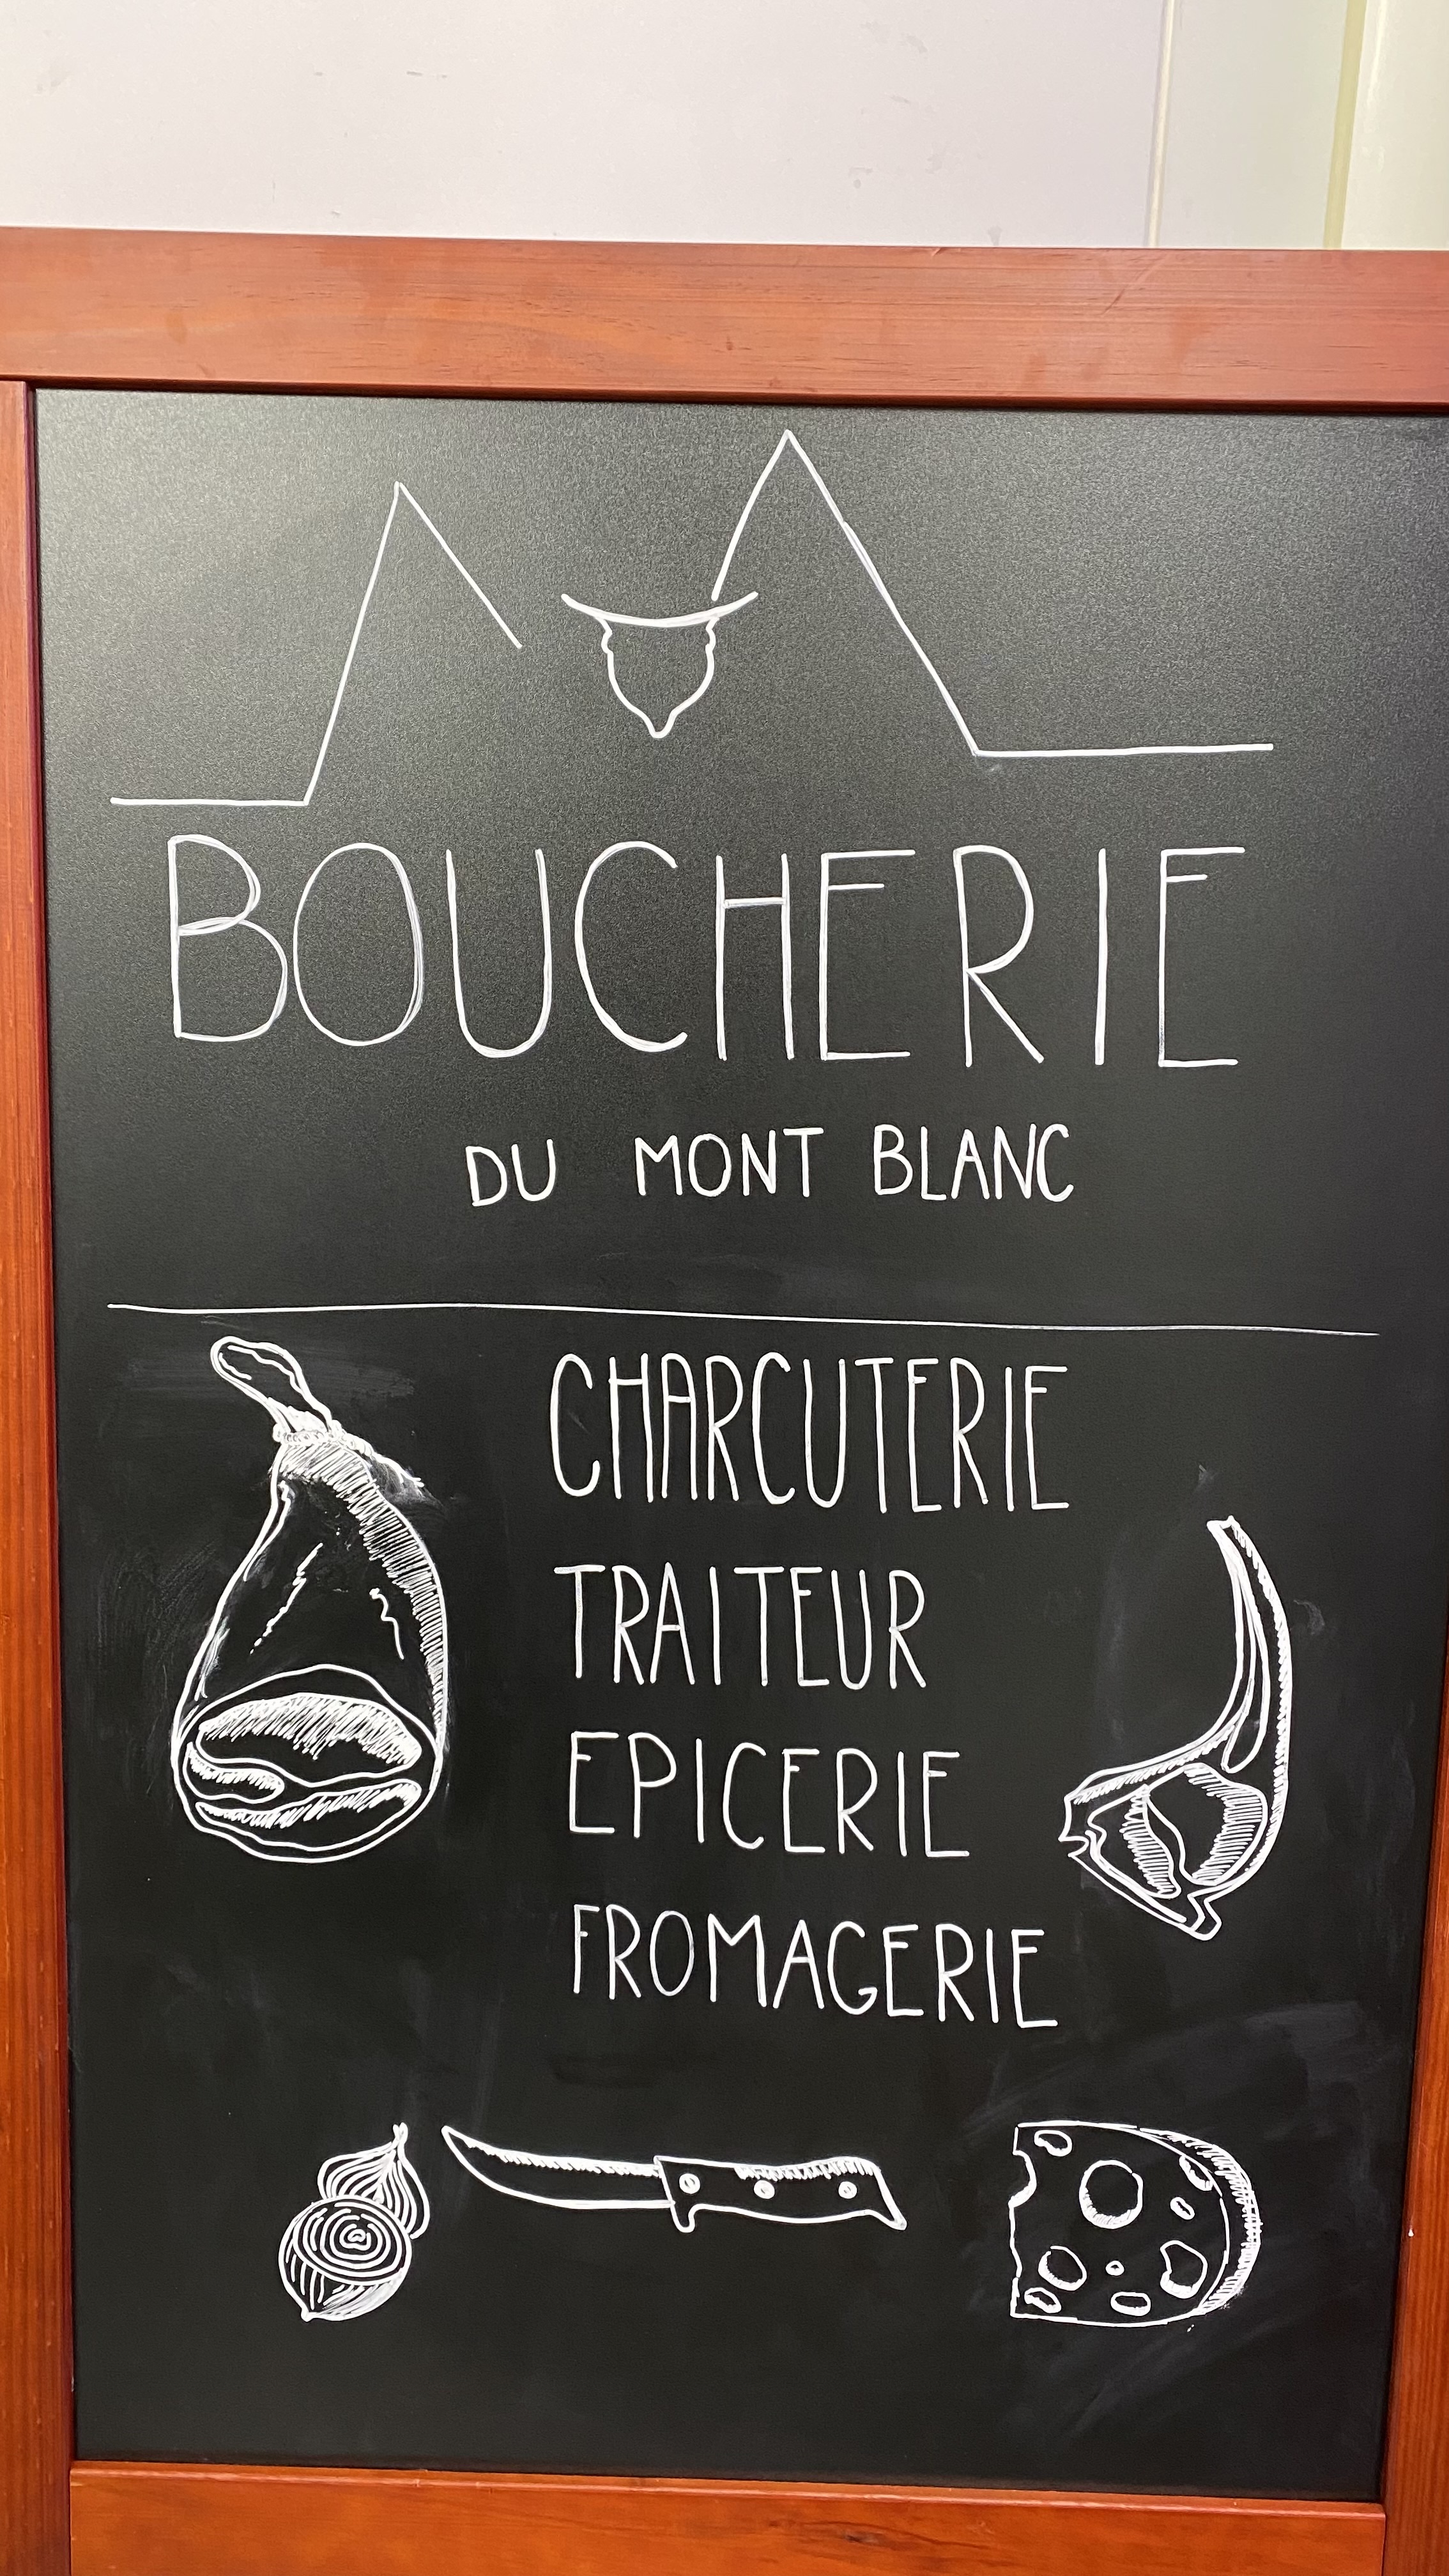 BOUCHERIE
DU MONT BLANC
CHARCUTERIE
TRAITEUR
EPICERIE
FROMAGERIE